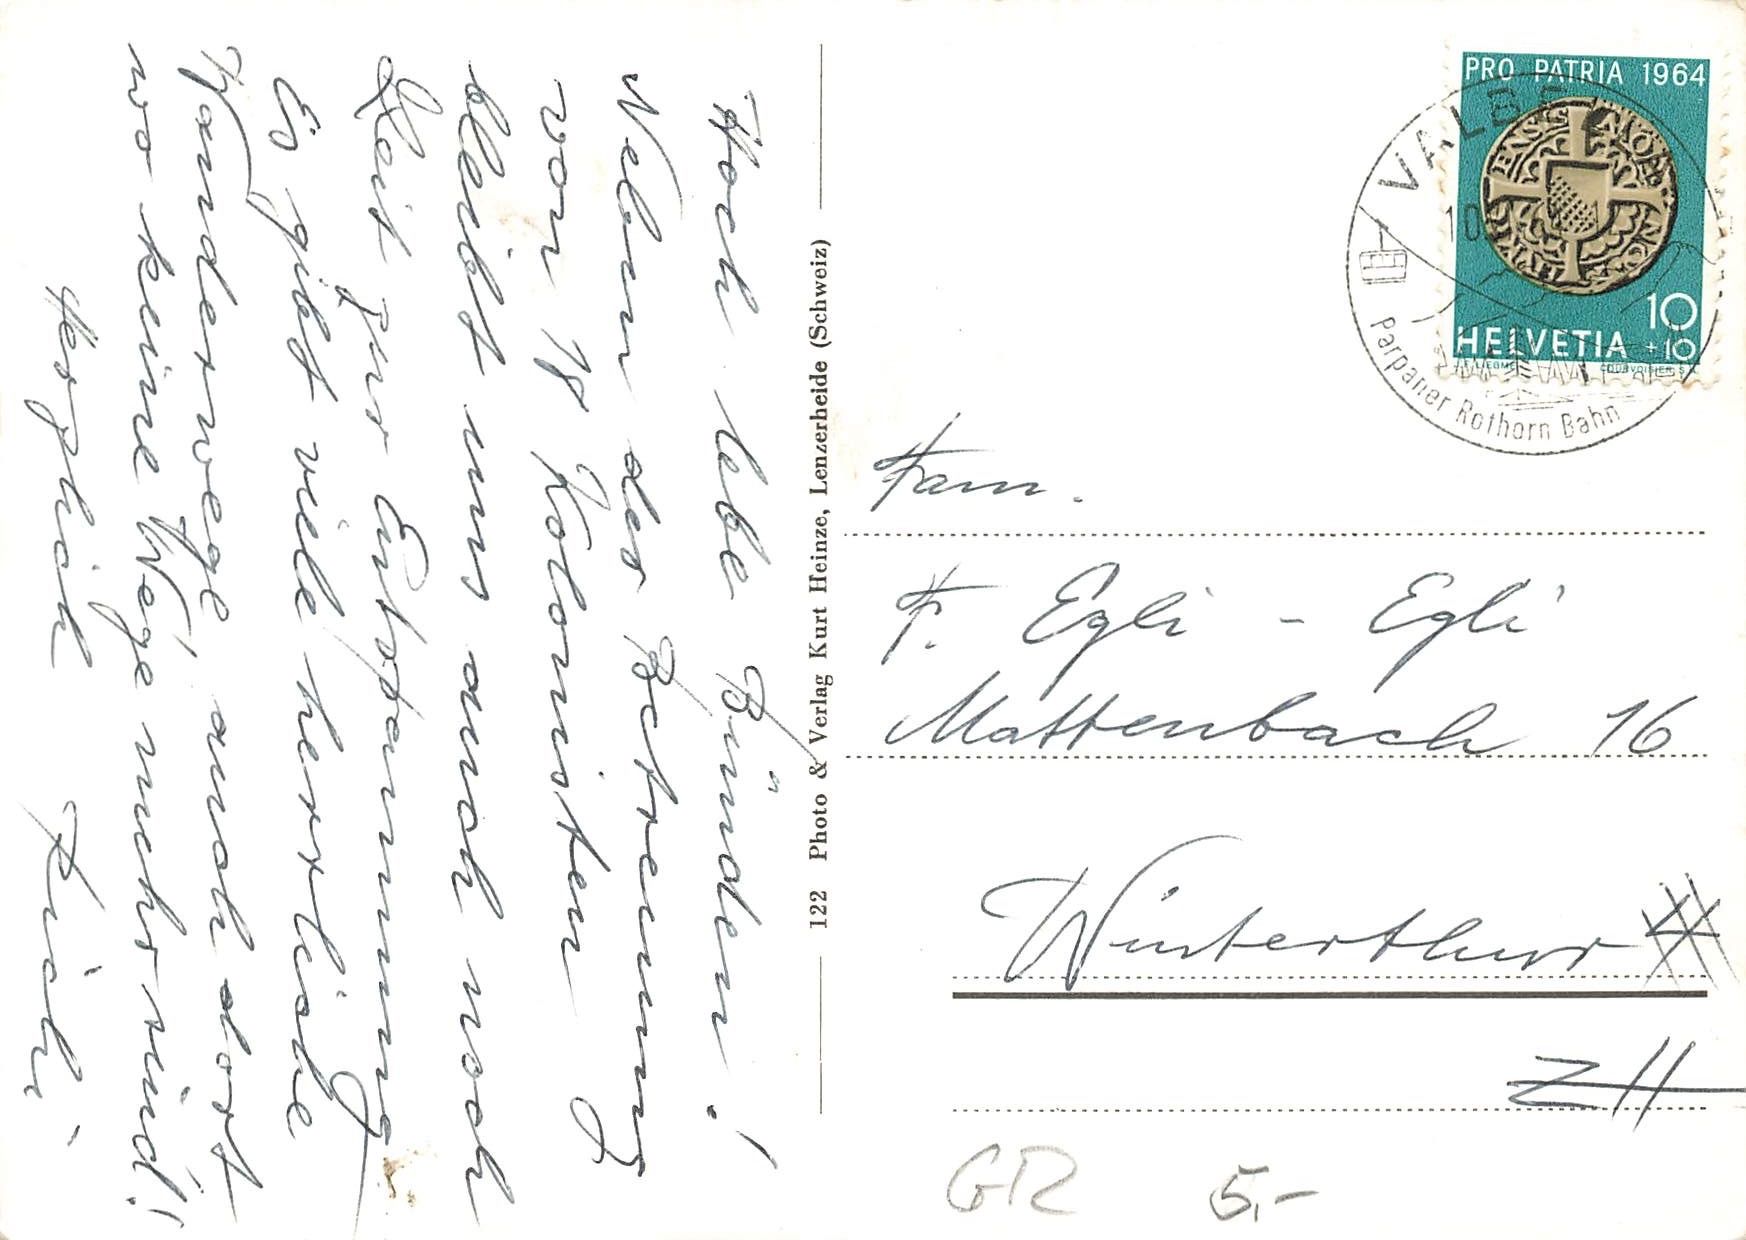 Hoch lebe Bünden!
Neben der Betreuung
von 18 Kolonisten
bleibt uns auch noch
Zeit zur Entspannung
Es gibt viele herrliche
Wanderwege auch dort
wo keine Wege mehr sind!!
Herzlich
Ruchi
122 Photo & Verlag Kurt Heinze, Lenzerheide (Schweiz)
PRO PATRIA 1964
10
HELVETIA +10
COURVOISIER S.A.
VALBE
10.
Parpaner Rothorn Bahn
Fam.
F. Egli - Egli
Mattenbach 16
Winterthur
ZH
GR 5.-